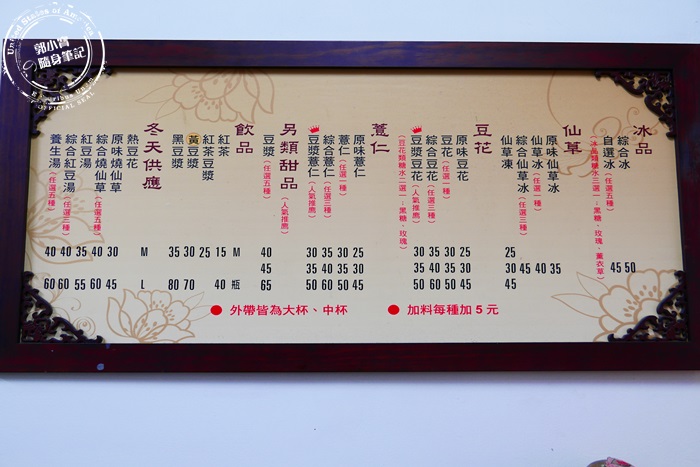 冰品
綜合冰 50
自選冰(任選五種) 45
(冰品類糖水三選一：黑糖、玫瑰、薰衣草)
仙草
原味仙草冰 35
仙草冰(任選一種) 40
綜合仙草冰(任選三種) 45
仙草凍 25 30 45
豆花
原味豆花 25 30 45
豆花(任選一種) 30 35 50
綜合豆花(任選三種) 35 40 60
豆漿豆花(人氣推薦) 30 35 50
(豆花類糖水二選一：黑糖、玫瑰)
薏仁
原味薏仁 25 30 45
薏仁(任選一種) 30 35 50
綜合薏仁(任選三種) 35 40 60
豆漿薏仁(人氣推薦) 30 35 50
另類甜品(人氣推薦)
豆漿(任選五種) 40 45 65
飲品 M 瓶
紅茶 15 40
紅茶豆漿 25
黃豆漿 30 70
黑豆漿 35 80
冬天供應 M L
熱豆花 30 45
原味燒仙草 30 45
綜合燒仙草(任選五種) 40 60
紅豆湯 35 55
綜合紅豆湯(任選三種) 40 60
養生湯(任選五種) 40 60
● 外帶皆為大杯、中杯
● 加料每種加 5 元
郭小寶
隨身筆記
OFFICIAL SEAL